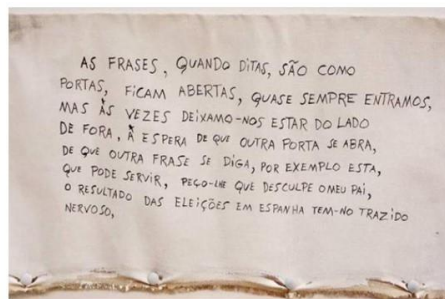 AS FRASES, QUANDO DITAS, SÃO COMO
PORTAS, FICAM ABERTAS, QUASE SEMPRE ENTRAMOS,
MAS ÀS VEZES DEIXAMO-NOS ESTAR DO LADO
DE FORA, À ESPERA DE QUE OUTRA PORTA SE ABRA,
DE QUE OUTRA FRASE SE DIGA, POR EXEMPLO ESTA,
QUE PODE SERVIR, PEÇO-LHE QUE DESCULPE O MEU PAI,
O RESULTADO DAS ELEIÇÕES EM ESPANHA TEM-NO TRAZIDO
NERVOSO,